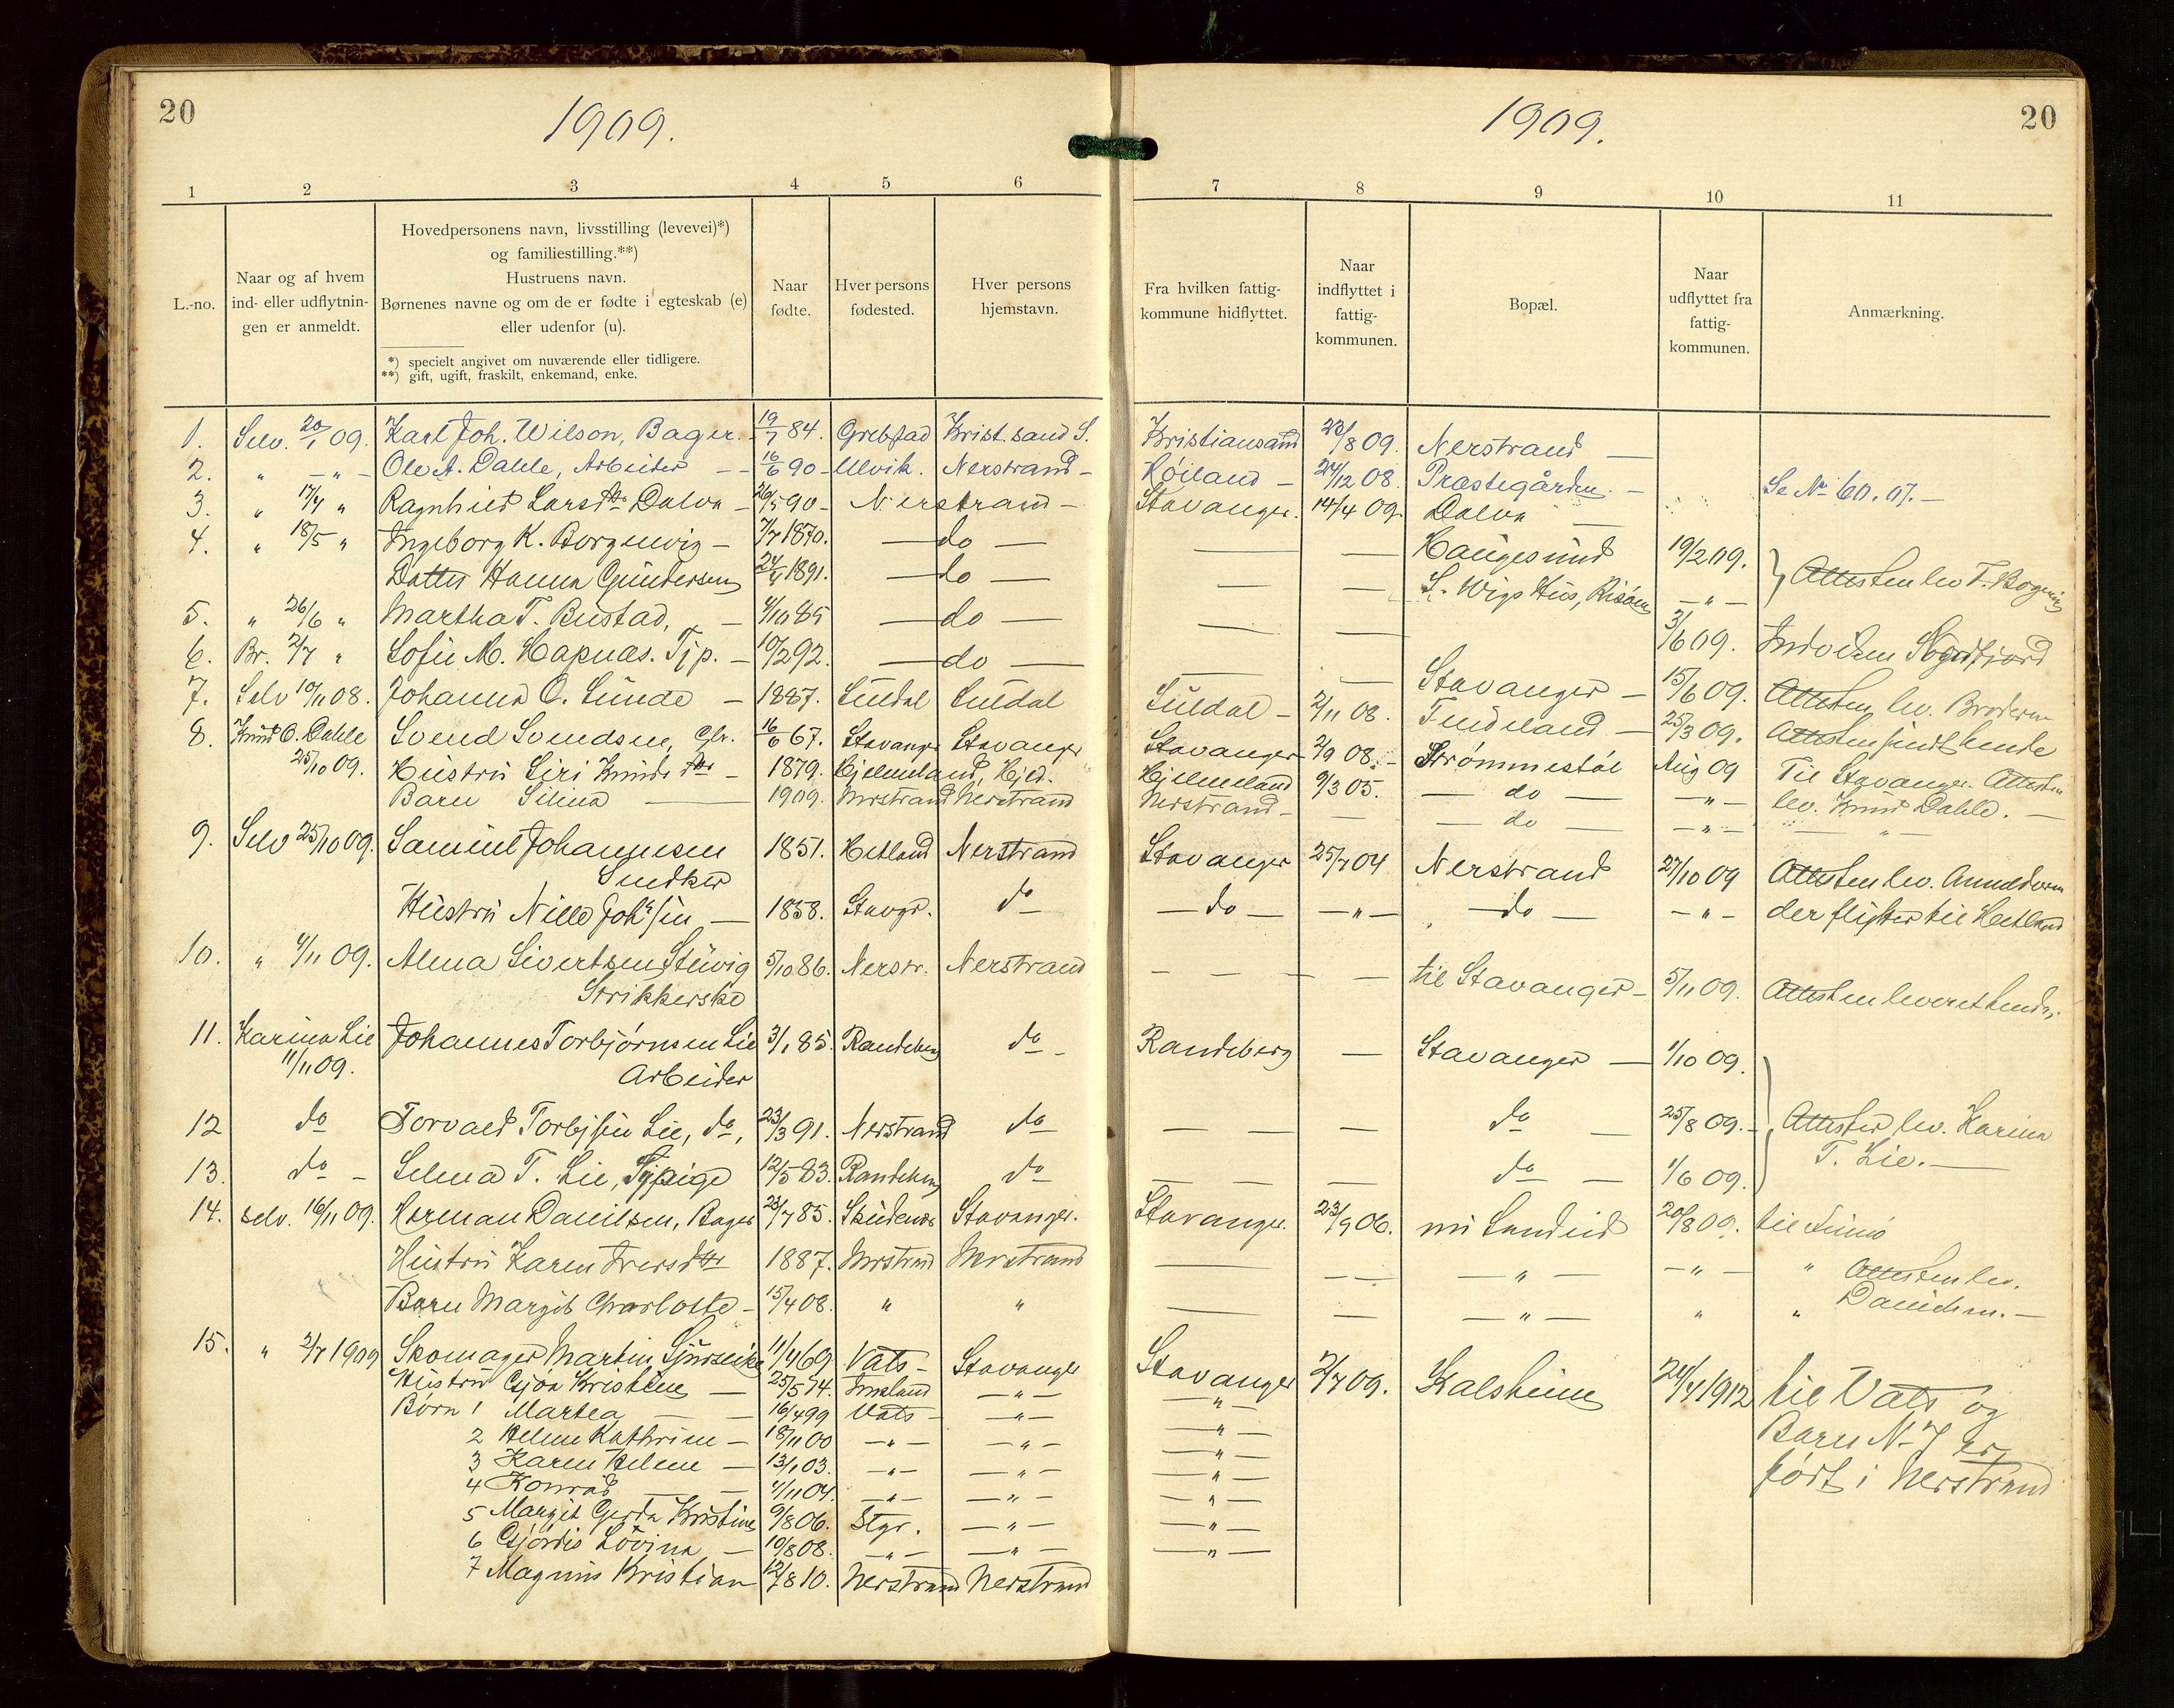 20
1909.
1 2 3 4 5 6
L.-no.
Naar og af hvem ind- eller udflytnin-gen er anmeldt.
Hovedpersonens navn, livsstilling (levevei)*)
og familiestilling.**)
Hustruens navn.
Børnenes navne og om de er fødte i egteskab (e)
eller udenfor (u).
*) specielt angivet om nuværende eller tidligere.
**) gift, ugift, fraskilt, enkemand, enke.
Naar fødte.
Hver persons fødested.
Hver persons hjemstavn.
1. Selv. 20/1 09. Karl Joh. Wilson, Bager. 19/7 84. Krist.sand S.
2. " — " — Ole A. Dahle, Arbeider — 16/6 90 - Ulvik. Nerstrand -
3. " 17/4 " Ragnhild Larsdtr Dalva - 26/5 90 - Nerstrand -
4. " 18/5 " Ingeborg K. Borgenvig - 7/7 1870. — do —
Datter Hanna Gundersen 1891. — do —
5. " 26/6 " Martha T. Bustad, - 4/10 85 — do —
6. Br. 2/7 " Sofie M. Hapnas. Tjp. - 10/2 92. — do —
7. Selv 10/11 08. Johanna O. Lunde - 1887. Suldal Suldal
8. Knud O. Dahle Svend Svendsen, 16/6 67. Stavanger Stavanger
25/10 09. Hustru Siri Knudsdtr - 1879. Hjelmeland, Hjel.
Barn Silina — 1909. Nerstrand Nerstrand
9. Selv 25/10 09. Samuel Johannesen 1851. Hetland Nerstrand
Snedker
Hustru Nille Johsen — 1858. Stavgr. do
10. " 4/11 09. Alma Sivertsen Stuvig 5/10 86. Nerstr. Nerstrand
Strikkerske
11. Karina Lie Johannes Torbjørnsen Lie 3/1 85. Randeberg do -
11/11 09. Arbeider
12 do Torvald Torbjsen Lie, do, 23/3 91. Nerstrand do
13. do - Selma T. Lie, Sypige 12/5 83. Randeberg do
14. selv. 16/11 09. Herman Danielsen, Bager 23/7 85. Stavanger.
Hustru Karen Iversdtr 1887. Nerstrand Nerstrand
Barn Margit Charlotte - 15/4 08. " "
15. " 2/7 1909 Skomager Martin 11/4 69 Vats - Stavanger
Hustru Kristine — 25/5 74. Imsland — " —
Børn 1 Martea — — 16/4 99 Vats - — " —
2 Helene Kathrine - 18/11 00 — " — — " —
3 Karen Helene — 13/1 03. — " — — " —
4 Konrad — — 4/11 04. — " — — " —
5 Margit Gerda Kristine 9/8 06. Stgr. — " —
6 Lovina — 10/8 08. — " — — " —
7 Magnus Kristian 12/7 8 10. Nerstrand Nerstrand
20
1909.
7 8 9 10 11
Fra hvilken fattig-kommune hidflyttet.
Naar indflyttet i fattig-kommunen.
Bopæl.
Naar udflyttet fra fattig-kommunen.
Anmærkning.
Kristiansand 23/8 09. Nerstrand —
Høiland - 24/12 08. Præstegården. - Se No 60. 07. -
Stavanger. 14/4 09. Dalva —
— — Haugesund 19/2 09. Attesten lev T. Bogenvig
— — S. Wigs Hus, Risøen — " —
— — 3/6 09. Indv
— — Stavanger - 15/6 09. Attesten lev. Broderen
Suldal - 2/11 08. — 25/3 09. Attesten sendt hende
Stavanger - 2/9 08. - Strømmestøl Aug 09 Til Stavanger. Attesten
Hjelmeland 9/3 05. — do — — " — lev. Knud Dahle. —
Nerstrand - — — do — — " — — " —
Stavanger 25/7 04 Nerstrand 27/10 09 Attesten lev. Anmelderen
— do — — " — — do — — " — der flytter til Hetland
— — — — til Stavanger - 5/11 09. Attesten leveret hende.
Randeberg — Stavanger — 1/10 09.
— — — do — 25/8 09. - Attester lev. Karina
— — — do — 1/6 09. T. Lie. —
Stavanger. 23/9 06. nu Sandeid 20/8 09. til
— — — — " — — " — " Attesten lev.
— — — " — " " Danielsen. —
Stavanger 2/7 09. Kalsheim 24/4 1912 til Vats og
— " — Barn N- 7 er
— " — ført i Nerstrand
— " —
— " —
— " —
— " —
— " —